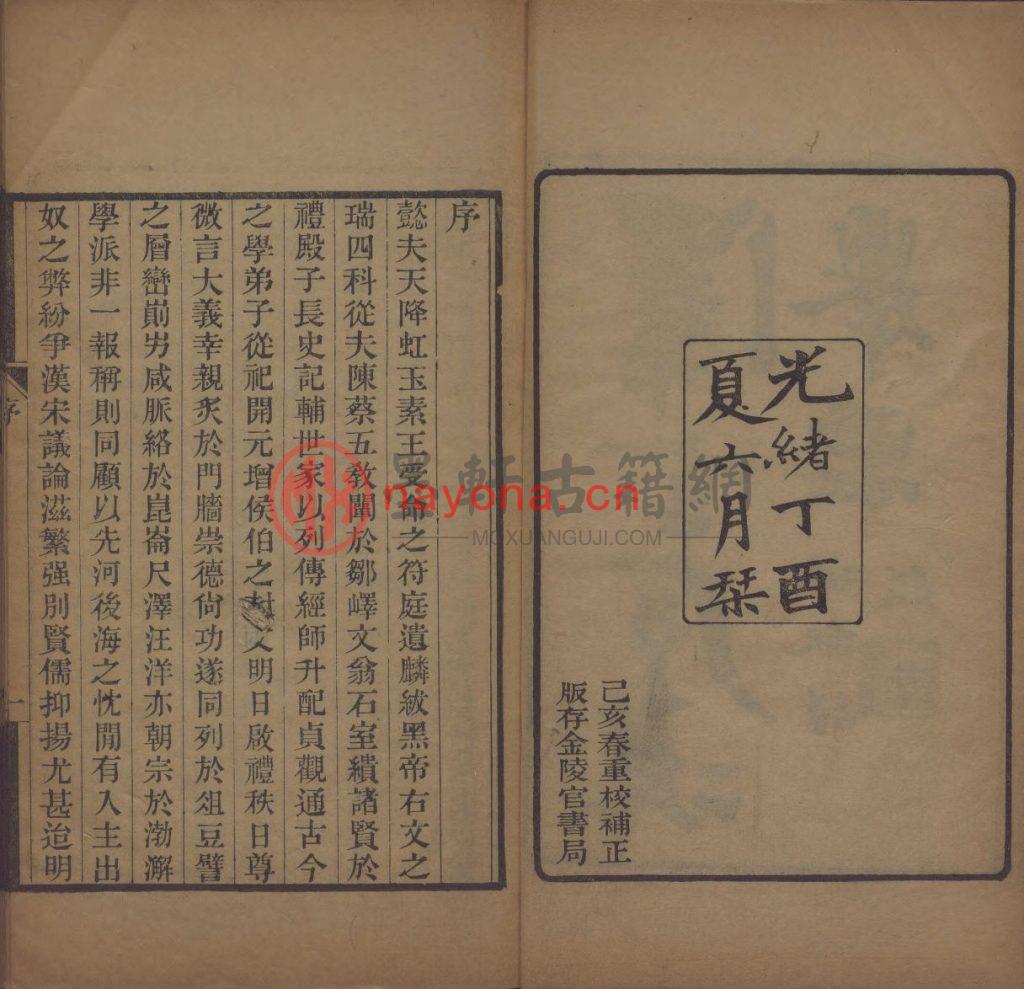 光緒丁酉
夏六月栞
己亥春重校補正
版存金陵官書局
序
懿夫天降虹玉素王受命之符庭遺麟紱黑帝右文之
瑞四科從夫陳蔡五教闡於鄒嶧文翁石室繢諸賢於
禮殿子長史記輔世家以列傳經師升配貞觀通古今
之學弟子從祀開元增侯伯之封文明日啟禮秩日尊
微言大義幸親炙於門牆崇德尙功遂同列於俎豆譬
之層巒崱屴咸脈絡於崑崙尺澤汪洋亦朝宗於渤澥
學派非一報稱則同顧以先河後海之忱閒有入主出
奴之弊紛爭漢宋議論滋繁强別賢儒抑揚尤甚迨明
序
一
墨軒古籍網
nayona.cn
MOXUANGUJI.COM